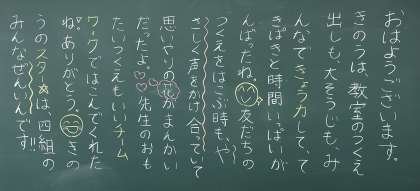 おはようございます。
きのうは、教室のつくえ
出しも、大そうじも、み
んなできょう力して、て
きぱきと時間いっぱいが
んばったね。友だちの
つくえをはこぶ時も、や
さしく声をかけ合っていて
思いやりの花がまんかい
だったよ。先生のおも
たいつくえもいいチーム
ワークではこんでくれた
ね。ありがとう。きの
うのスター☆は、四組の
みんなぜんいんです!!